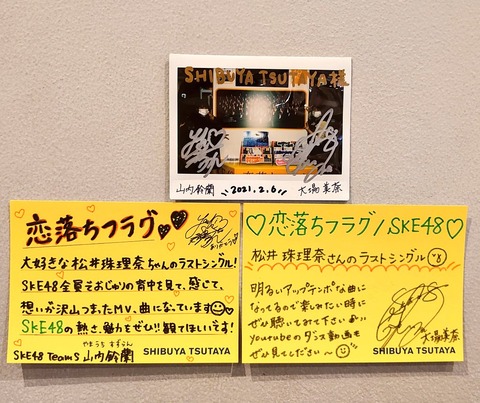 SHIBUYA TSUTAYA様
山内鈴蘭
2021.2.6
大場美奈
恋落ちフラグ
大好きな松井珠理奈ちゃんのラストシングル!
SKE48全員でじゅりの背中を見て、感じて、
想いが沢山つまったMV、曲になっています
SKE48の熱さ、魅力をぜひ!!観てほしいです!
やまうち すずらん
SKE48 TeamS 山内鈴蘭
SHIBUYA TSUTAYA
恋落ちフラグ/SKE48
松井 珠理奈さんのラストシングル
明るいアップテンポな曲に
なってるので楽しみたい時に
ぜひ聴いてみて下さい
Youtubeのダンス動画も
ぜひ見てください〜
大場美奈
SHIBUYA TSUTAYA